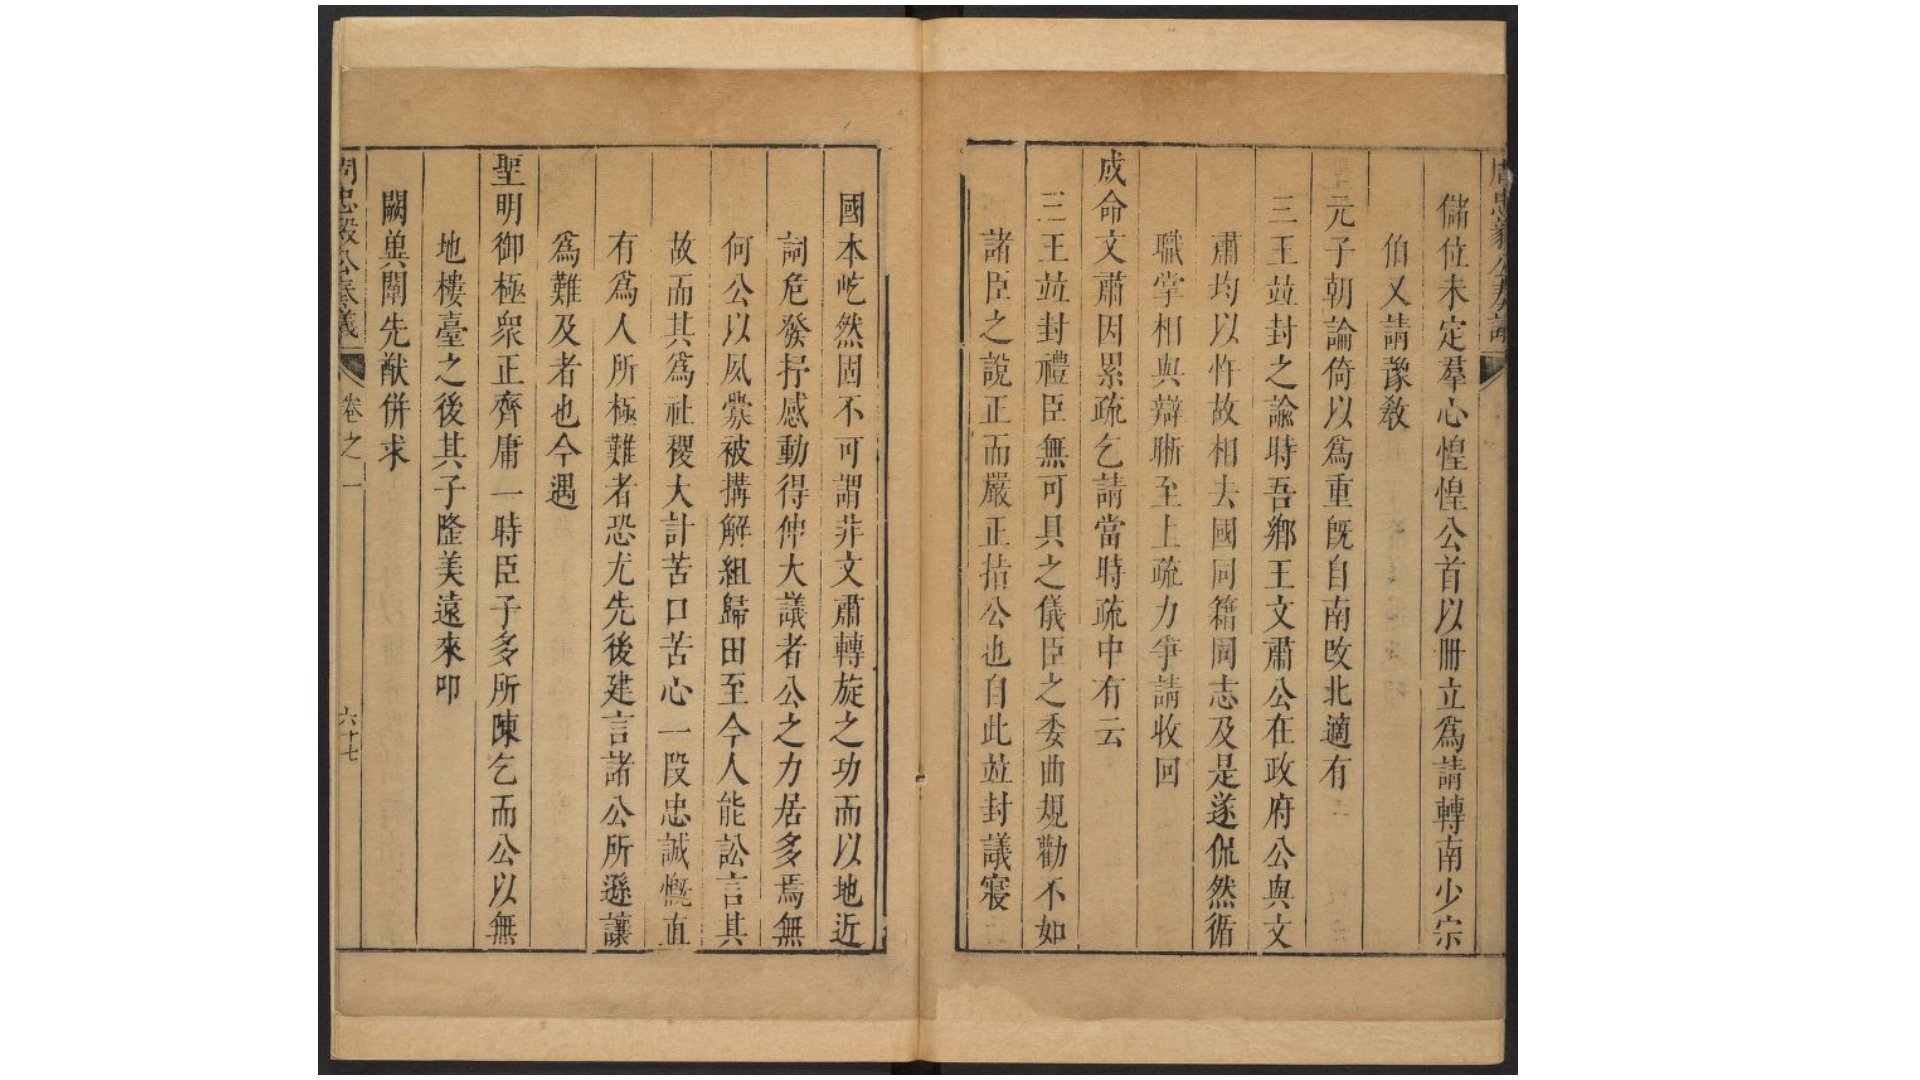 周忠毅公奏議
儲位未定羣心惶惶公首以冊立爲請轉南少宗
伯又請豫敎
元子朝論倚以爲重旣自南改北適有
三王並封之諭時吾鄉王文肅公在政府公與文
肅均以忤故相去國同籍同志及是遂侃然循
職掌相與辯晰至上疏力爭請收回
成命文肅因累疏乞請當時疏中有云
三王並封禮臣無可具之儀臣之委曲規勸不如
諸臣之說正而嚴正指公也自此並封議寢
國本屹然固不可謂非文肅轉旋之功而以地近
詞危發抒感動得伸大議者公之力居多焉無
何公以夙釁被搆解組歸田至今人能訟言其
故而其爲社稷大計苦口苦心一段忠誠慨直
有爲人所極難者恐尤先後建言諸公所遜讓
爲難及者也今遇
聖明御極衆正齊庸一時臣子多所陳乞而公以無
地樓臺之後其子隆美遠來叩
闕兾闡先猷併求
周忠毅公奏議
卷之一
六十七